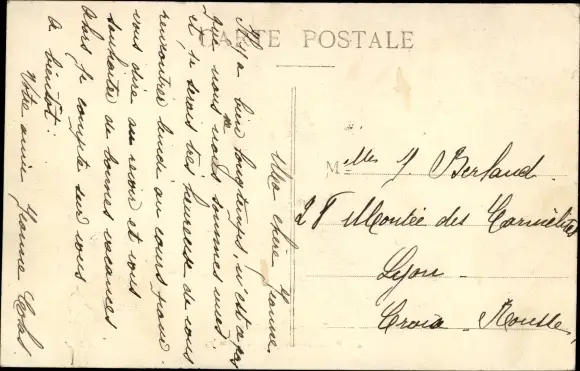 CARTE POSTALE
Ma chère Jeanne.
Il y a bien longtemps, n'est-ce pas
que nous ne nous sommes vues
et je serais très heureuse de vous
rencontrer lundi au cours pour
vous dire au revoir et vous
souhaiter de bonnes vacances.
Alors je compte sur vous
à bientôt:
Votre amie Jeanne
Mlle J. Berland.
Montée des Carmélites
Lyon -
Croix - Rousse.